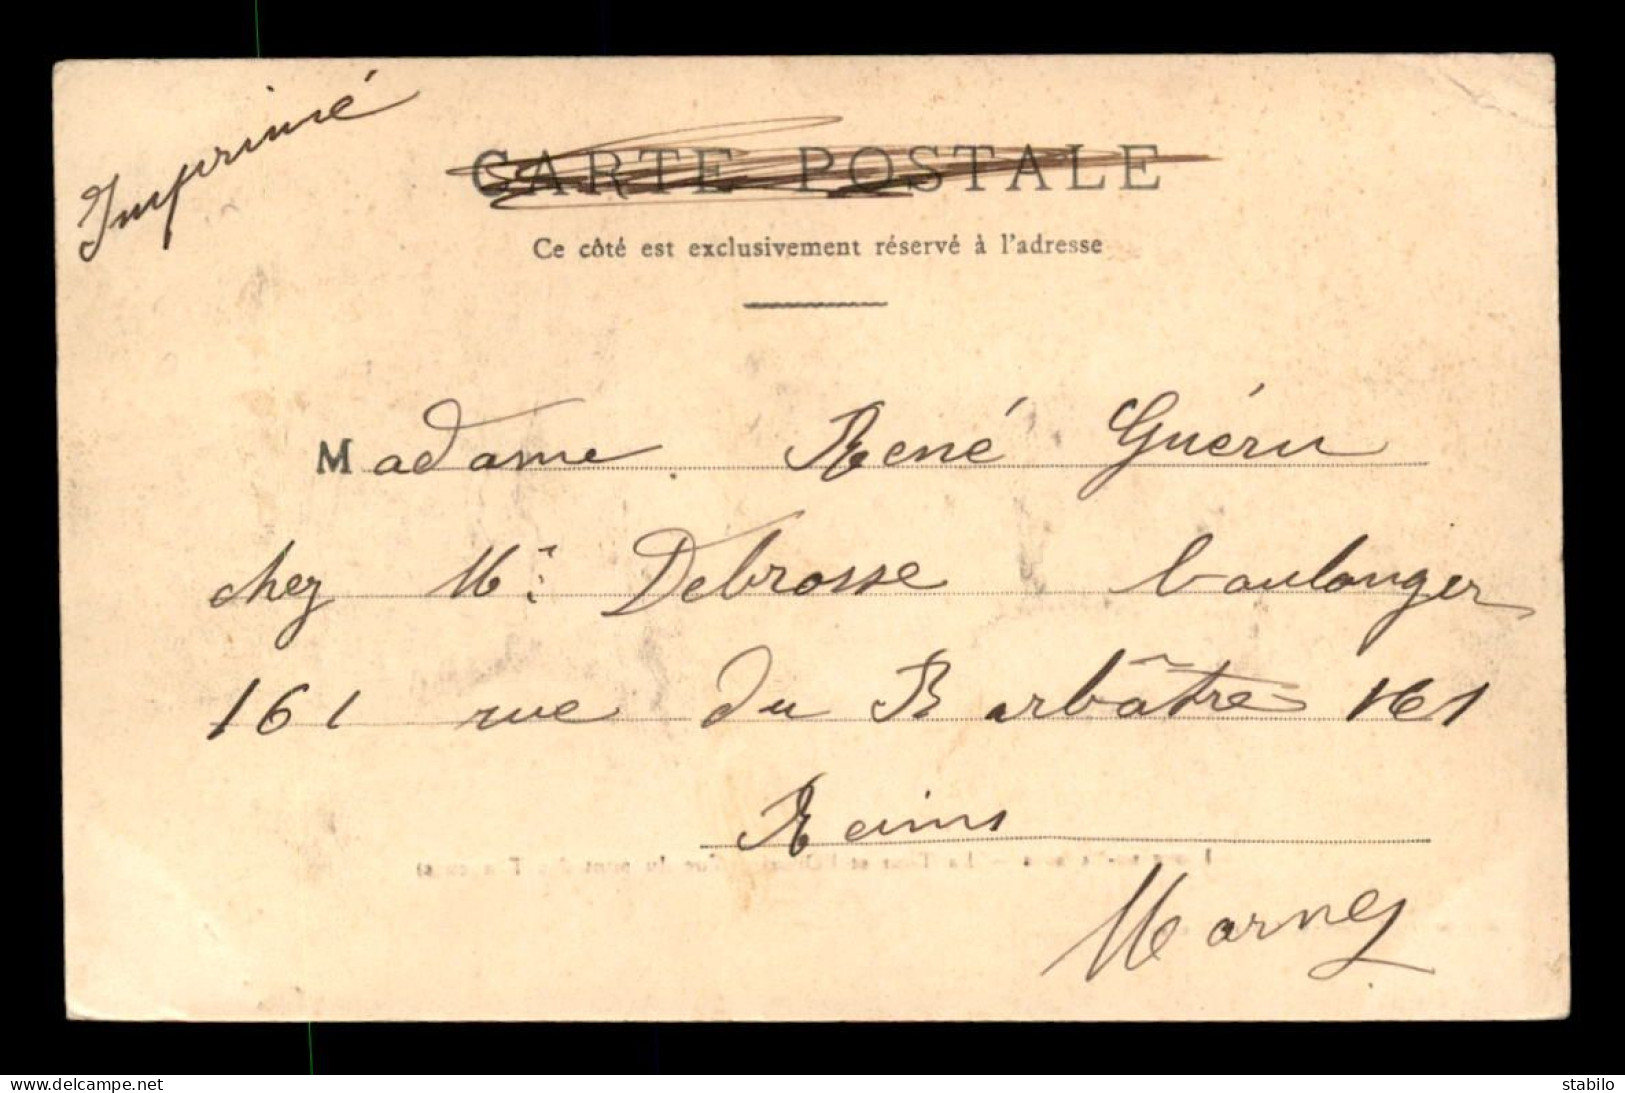 Imprimé
CARTE POSTALE
Ce côté est exclusivement réservé à l'adresse
Madame René Guérin
chez Mr Debrosse boulanger
161 rue du Barbâtre 161
Reims
Marne
www.delcampe.net
stabilo